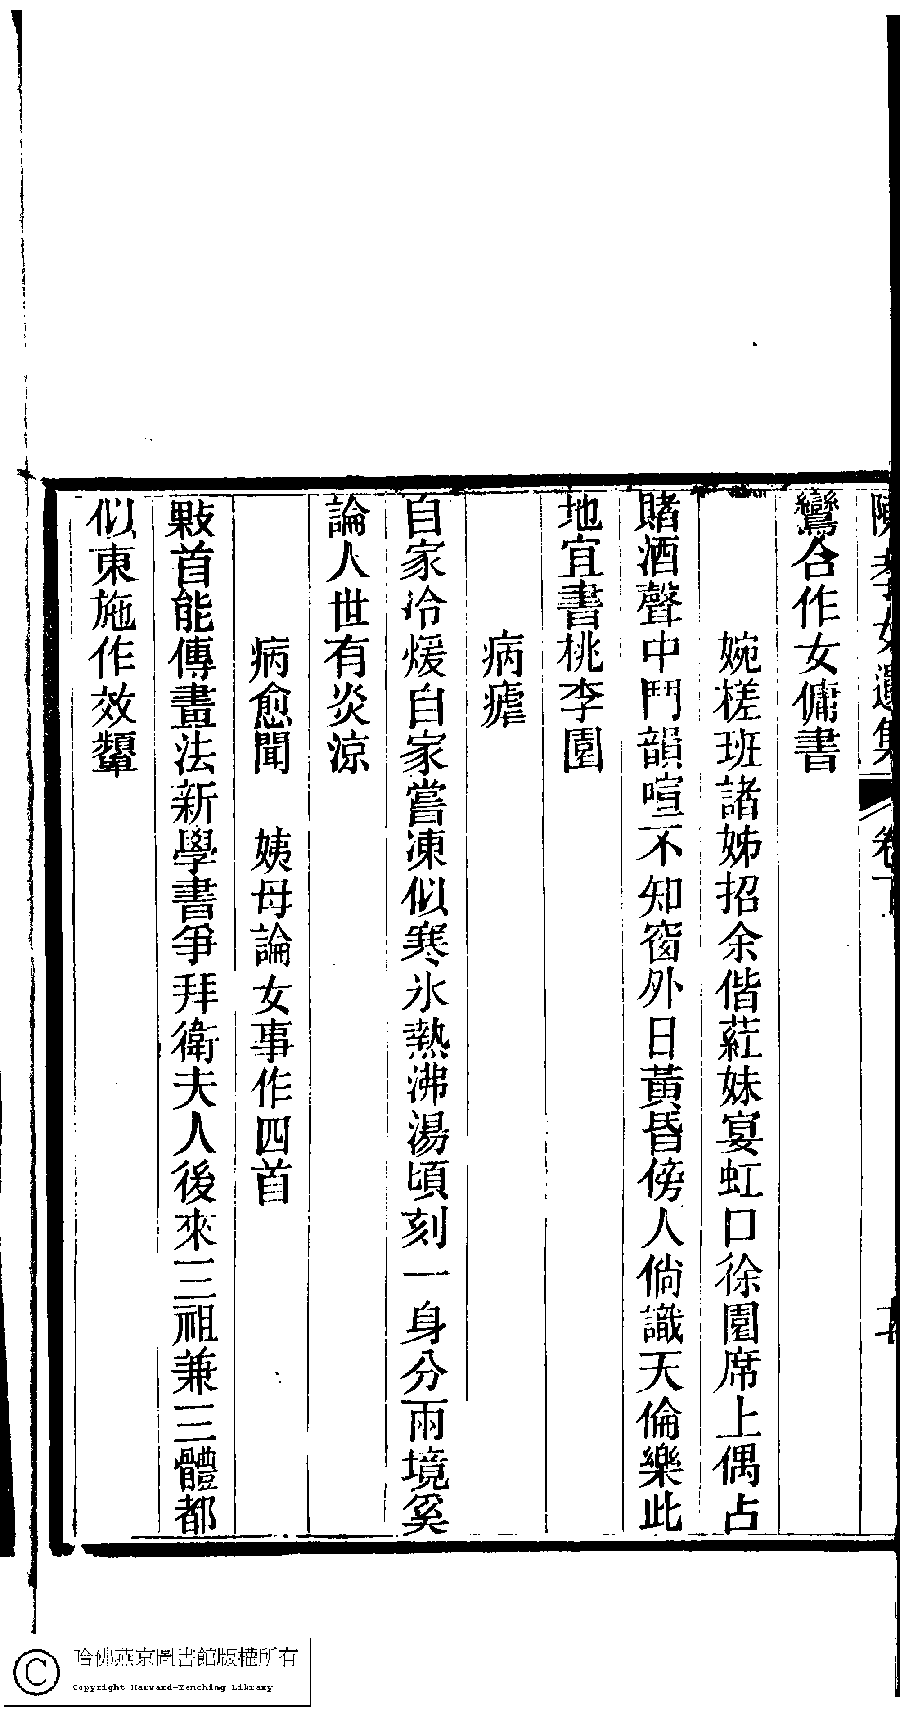 陳孝女遺集 卷下
鸞合作女傭書
婉槎班諸姊招余偕葒妹宴虹口徐園席上偶占
賭酒聲中鬥韻喧不知窗外日黃昏傍人倘識天倫樂此
地宜書桃李園
病瘧
自家冷煖自家嘗凍似寒氷熱沸湯頃刻一身分兩境奚
論人世有炎涼
病愈聞 姨母論女事作四首
敤首能傳畫法新學書爭拜衛夫人後來三祖兼三體都
似東施作效顰
哈佛燕京圖書館版權所有
Copyright Harvard-Yenching Library